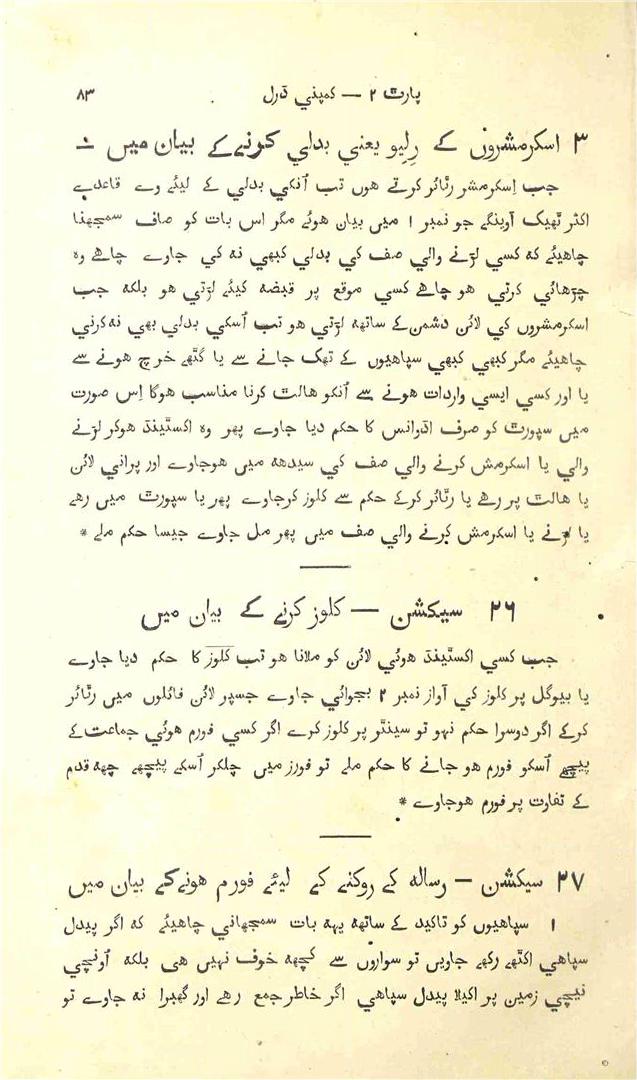 پارٹ ۲ — کمپني ڈرل ۸۳
۳ اسکرمشروں کے رِلیو یعني بدلي کرنے کے بیان میں —
جب اِسکرمشر رٹائر کرتے هوں تب اُنکي بدلي کے لیئے وے قاعدے
اکثر ٹھیک آوینگے جو نمبر ۱ میں بیان هوئے مگر اس بات کو صاف سمجهنا
چاهیئے که کسي لڑنے والي صف کي بدلي کبهي نه کي جاوے چاهے وه
چڑهائي کرتي هو چاهے کسي موقع پر قبضه کیئے لڑتي هو بلکه جب
اسکرمشروں کي لائن دشمن کے ساتهه لڑتي هو تب اُسکي بدلي بهي نه کرني
چاهیئے مگر کبهي کبهي سپاهیوں کے تهک جانے سے یا گٹهے خرچ هونے سے
یا اور کسي ایسي واردات هونے سے اُنکو هالٹ کرنا مناسب هوگا اِس صورت
میں سپورٹ کو صرف اڈوانس کا حکم دیا جاوے پهر وه اکسٹینڈ هوکر لڑنے
والي یا اسکرمش کرنے والي صف کي سیدهه میں هوجاوے اور پراني لائن
یا هالٹ پر رهے یا رٹائر کرکے حکم سے کلوز کرجاوے پهر یا سپورٹ میں رهے
یا لڑنے یا اسکرمش کرنے والي صف میں پهر مل جاوے جیسا حکم ملے *
۲۶ سیکشن — کلوز کرنے کے بیان میں
جب کسي اکسٹینڈ هوئي لائن کو ملانا هو تب کلوز کا حکم دیا جاوے
یا بیوگل پر کلوز کي آواز نمبر ۲ بجوائي جاوے جسپر لائن فائلوں میں رٹائر
کرکے اگر دوسرا حکم نهو تو سینٹر پر کلوز کرے اگر کسي فورم هوئي جماعت کے
پیچهے اُسکو فورم هو جانے کا حکم ملے تو فورز میں چلکر اُسکے پیچهے چهه قدم
کے تفاوت پر فورم هوجاوے *
۲۷ سیکشن — رساله کے روکنے کے لیئے فورم هونے کے بیان میں
۱ سپاهیوں کو تاکید کے ساتهه یهه بات سمجهاني چاهیئے که اگر پیدل
سپاهي اکٹهے رکهے جاویں تو سواروں سے کچهه خوف نهیں هی بلکه اُونچي
نیچي زمین پر اکیلا پیدل سپاهي اگر خاطر جمع رهے اور گهبرا نه جاوے تو